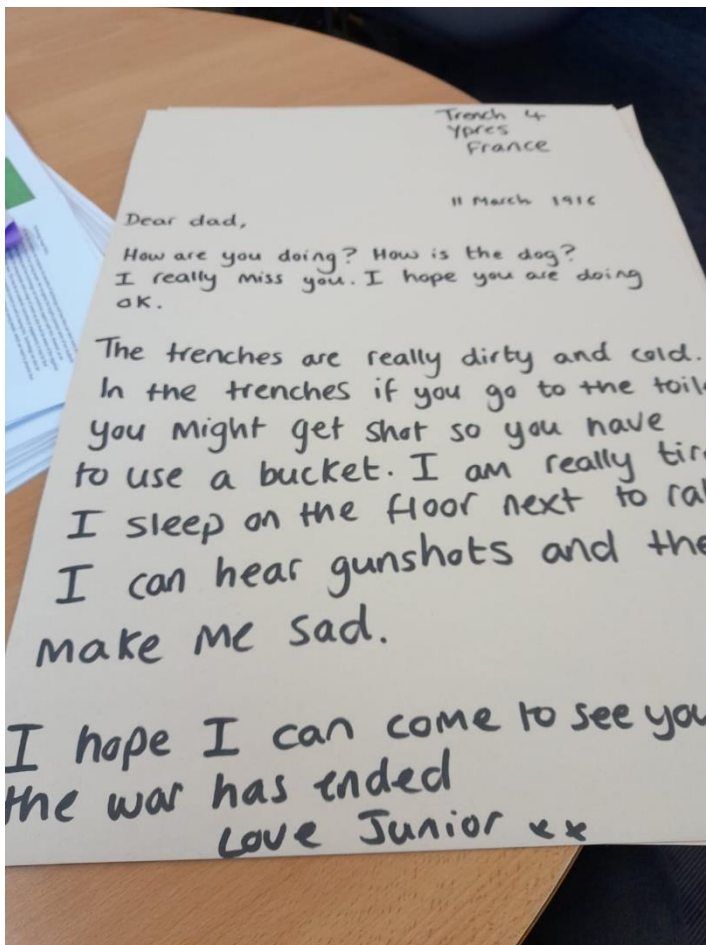 Trench 4
Ypres
France
11 March 1916
Dear dad,
How are you doing? How is the dog?
I really miss you. I hope you are doing
OK.
The trenches are really dirty and cold.
In the trenches if you go to the
you might get shot so you have
to use a bucket. I am really
I sleep on the floor next to
I can hear gunshots and
make me sad.
I hope I can come to see you
the war has ended
Love Junior xx